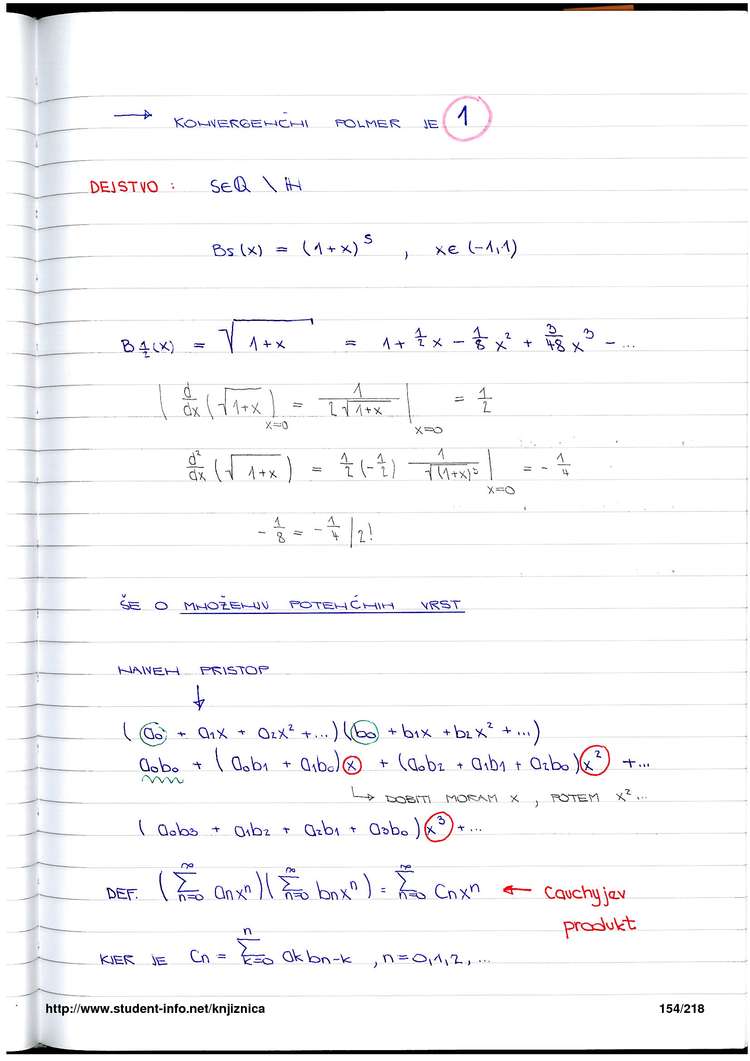 → KONVERGENČNI POLMER JE 1
DEJSTVO : S∈Q \ N
Bs(x) = (1+x)^s , x∈(-1,1)
B½(x) = √(1+x) = 1 + 1/2 x - 1/8 x² + 3/48 x³ - ...
( d/dx (√(1+x))|x=0 = 1/(2√(1+x)) |x=0 = 1/2
d²/dx (√(1+x)) = 1/2 (-1/2) 1/√(1+x)³ |x=0 = - 1/4
- 1/8 = - 1/4 / 2!
ŠE O MNOŽENJU POTENČNIH VRST
NAIVEN PRISTOP
↓
( a0 + a1x + a2x² + ...)( b0 + b1x + b2x² + ...)
a0b0 + ( a0b1 + a1b0 ) x + (a0b2 + a1b1 + a2b0) x² + ...
↳ DOBITI MORAM X , POTEM X² ...
( a0b3 + a1b2 + a2b1 + a3b0 ) x³ + ...
DEF. ( ∑n=0^∞ anx^n )( ∑n=0^∞ bnx^n ) = ∑n=0^∞ Cnx^n ← Cauchyjev
produkt
KJER JE Cn = ∑k=0^n akbn-k , n=0,1,2, ...
http://www.student-info.net/knjiznica 154/218